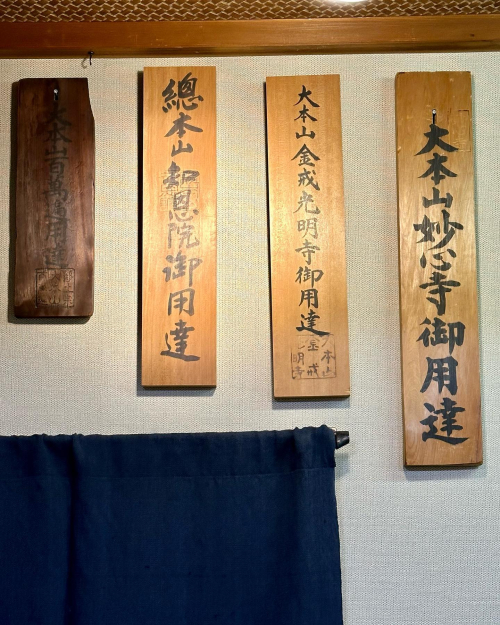 大本山妙心寺御用達
大本山金戒光明寺御用達
大本山
金戒
光明寺
總本山知恩院御用達
大本山百萬遍御用達